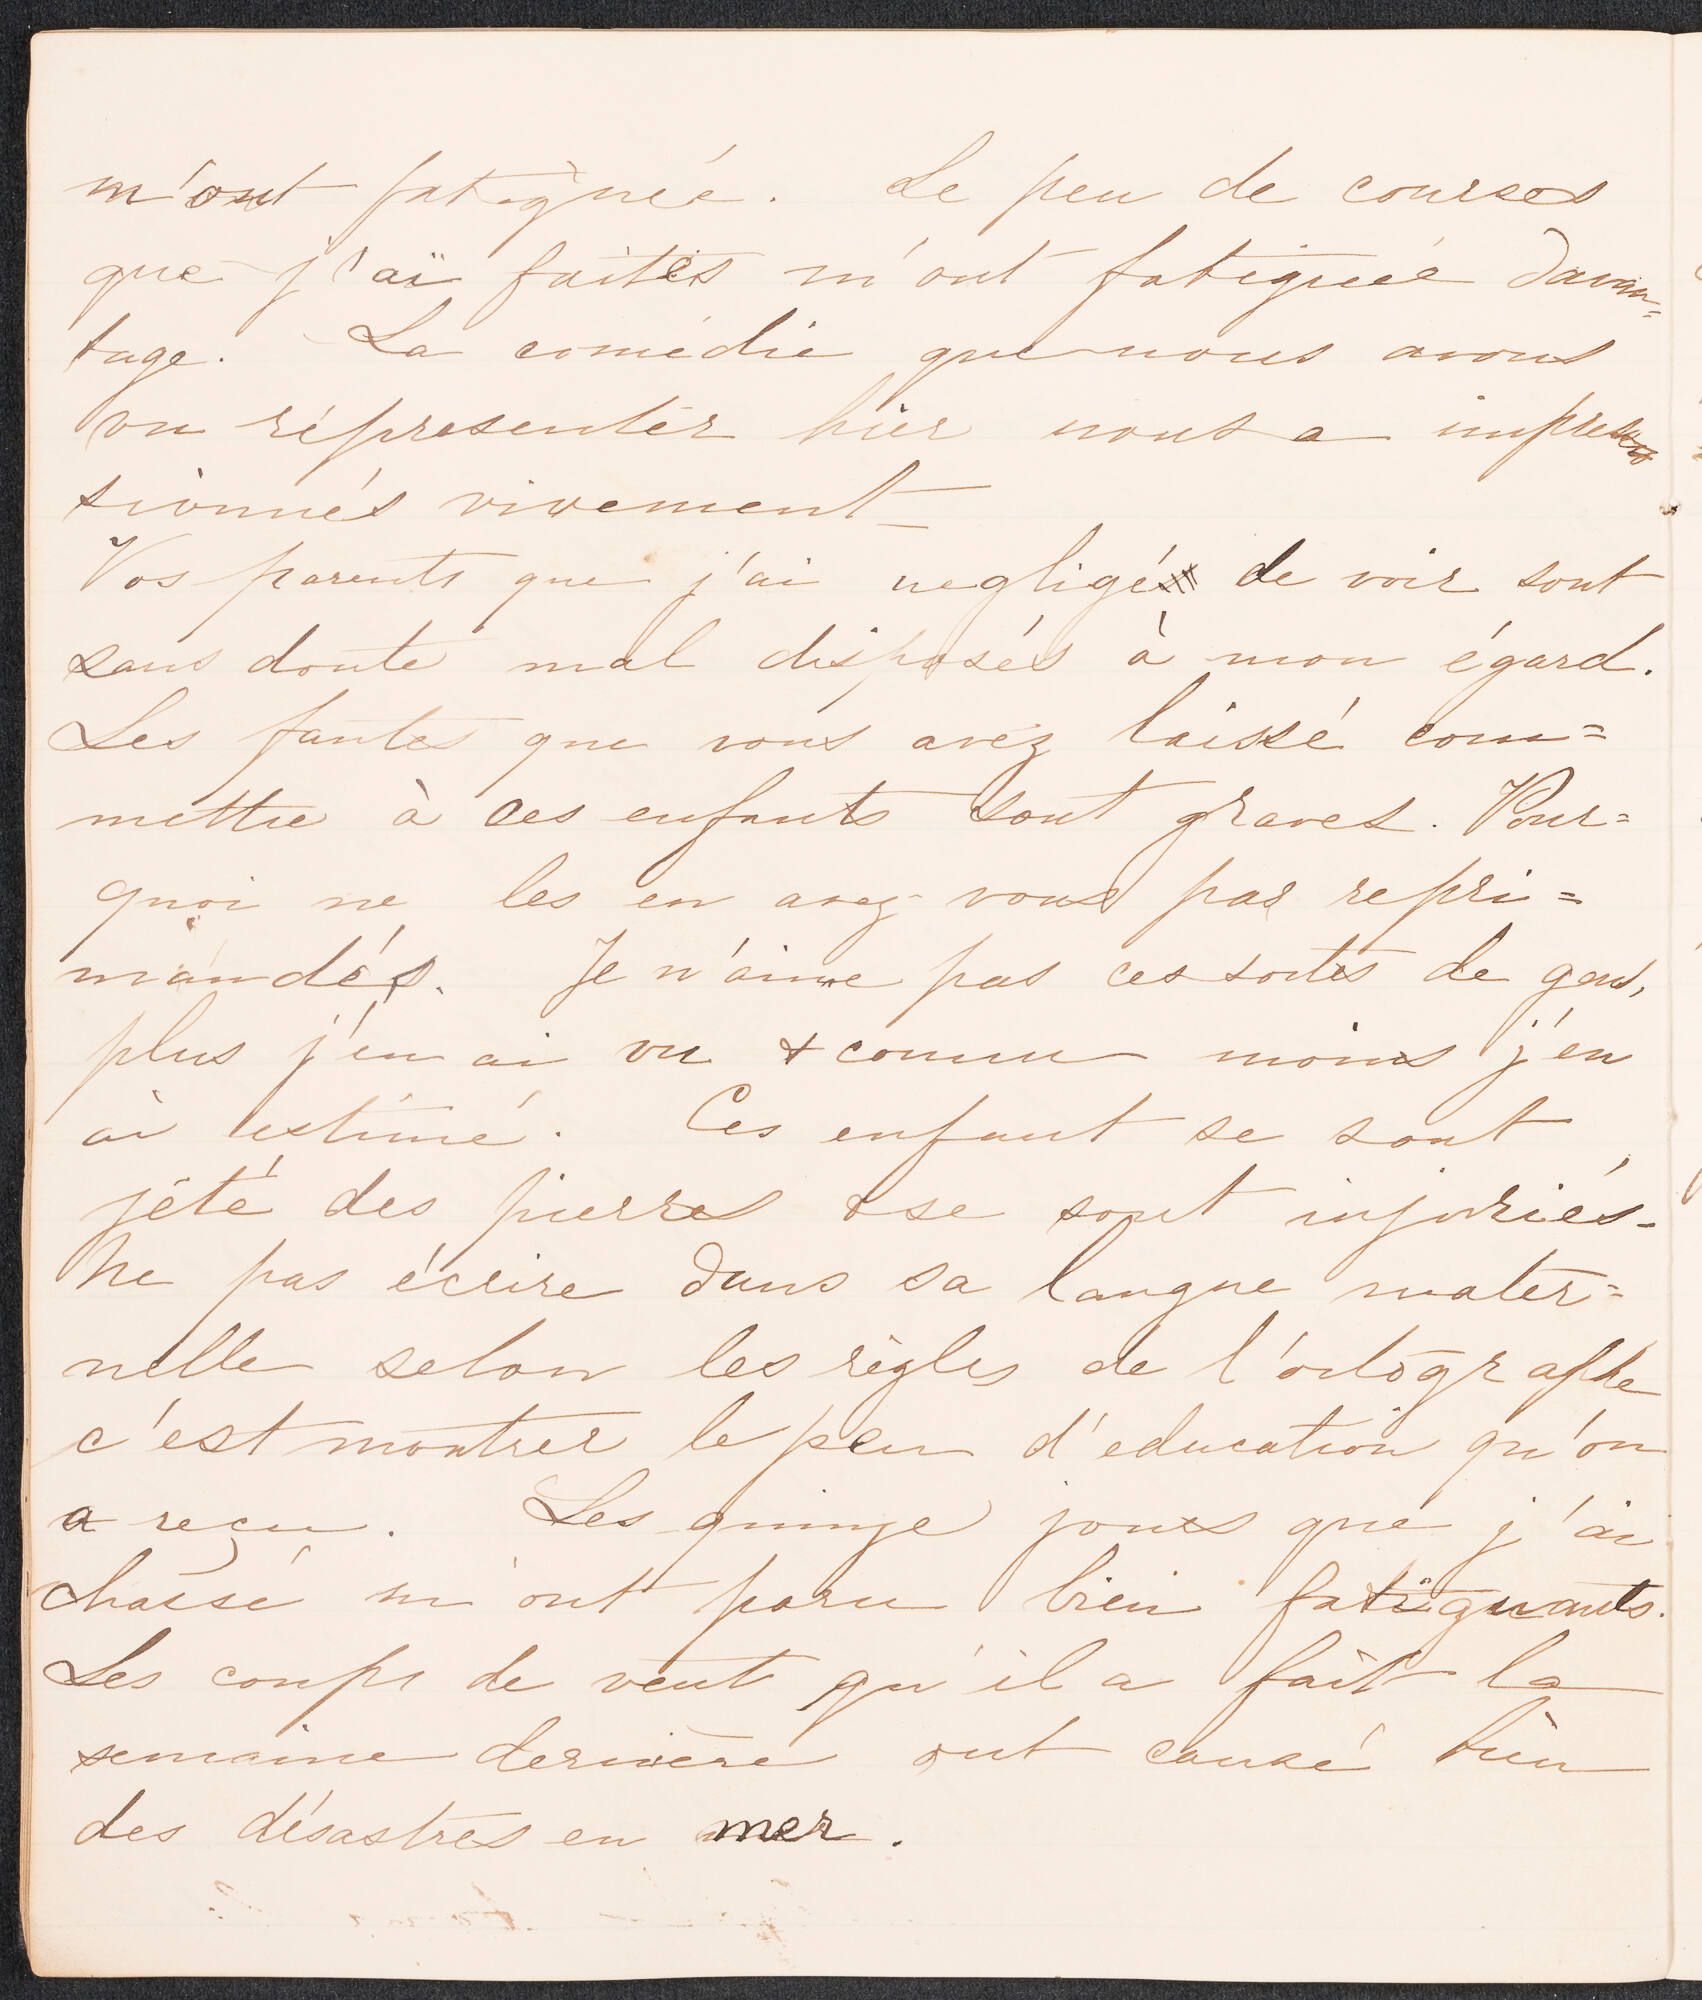 m'ont fatignée. Le peu de courses
que j'ai faites m'ont fatiguée davan=
tage. La comédie que nous avons
vu réprésenter hier nous a impres
sionnés vivement
Vos parents que j'ai negligé de voir sont
sans doute mal disposés à mon égard.
Les fautes que vous avez laissé com=
mettre à ces enfants sont graves. Pour=
quoi ne les en avez-vous pas repri=
mandés. Je n'aime pas ces sortes de gens,
plus j'en ai vu & connu moins j'en
ai estimé. Ces enfant se sont
jété des pierres & se sont injuriés-
Ne pas écrire dans sa langue mater=
nelle selon les règles de l'ortographe
c'est montrer le peu d'education qu'on
a reçu. Les quinze jours que j'ai
chassé m'ont paru bien fatiguants.
Les coups de vent qu'il a fait la
semaine dernière ont causé bien
des désastres en mer.